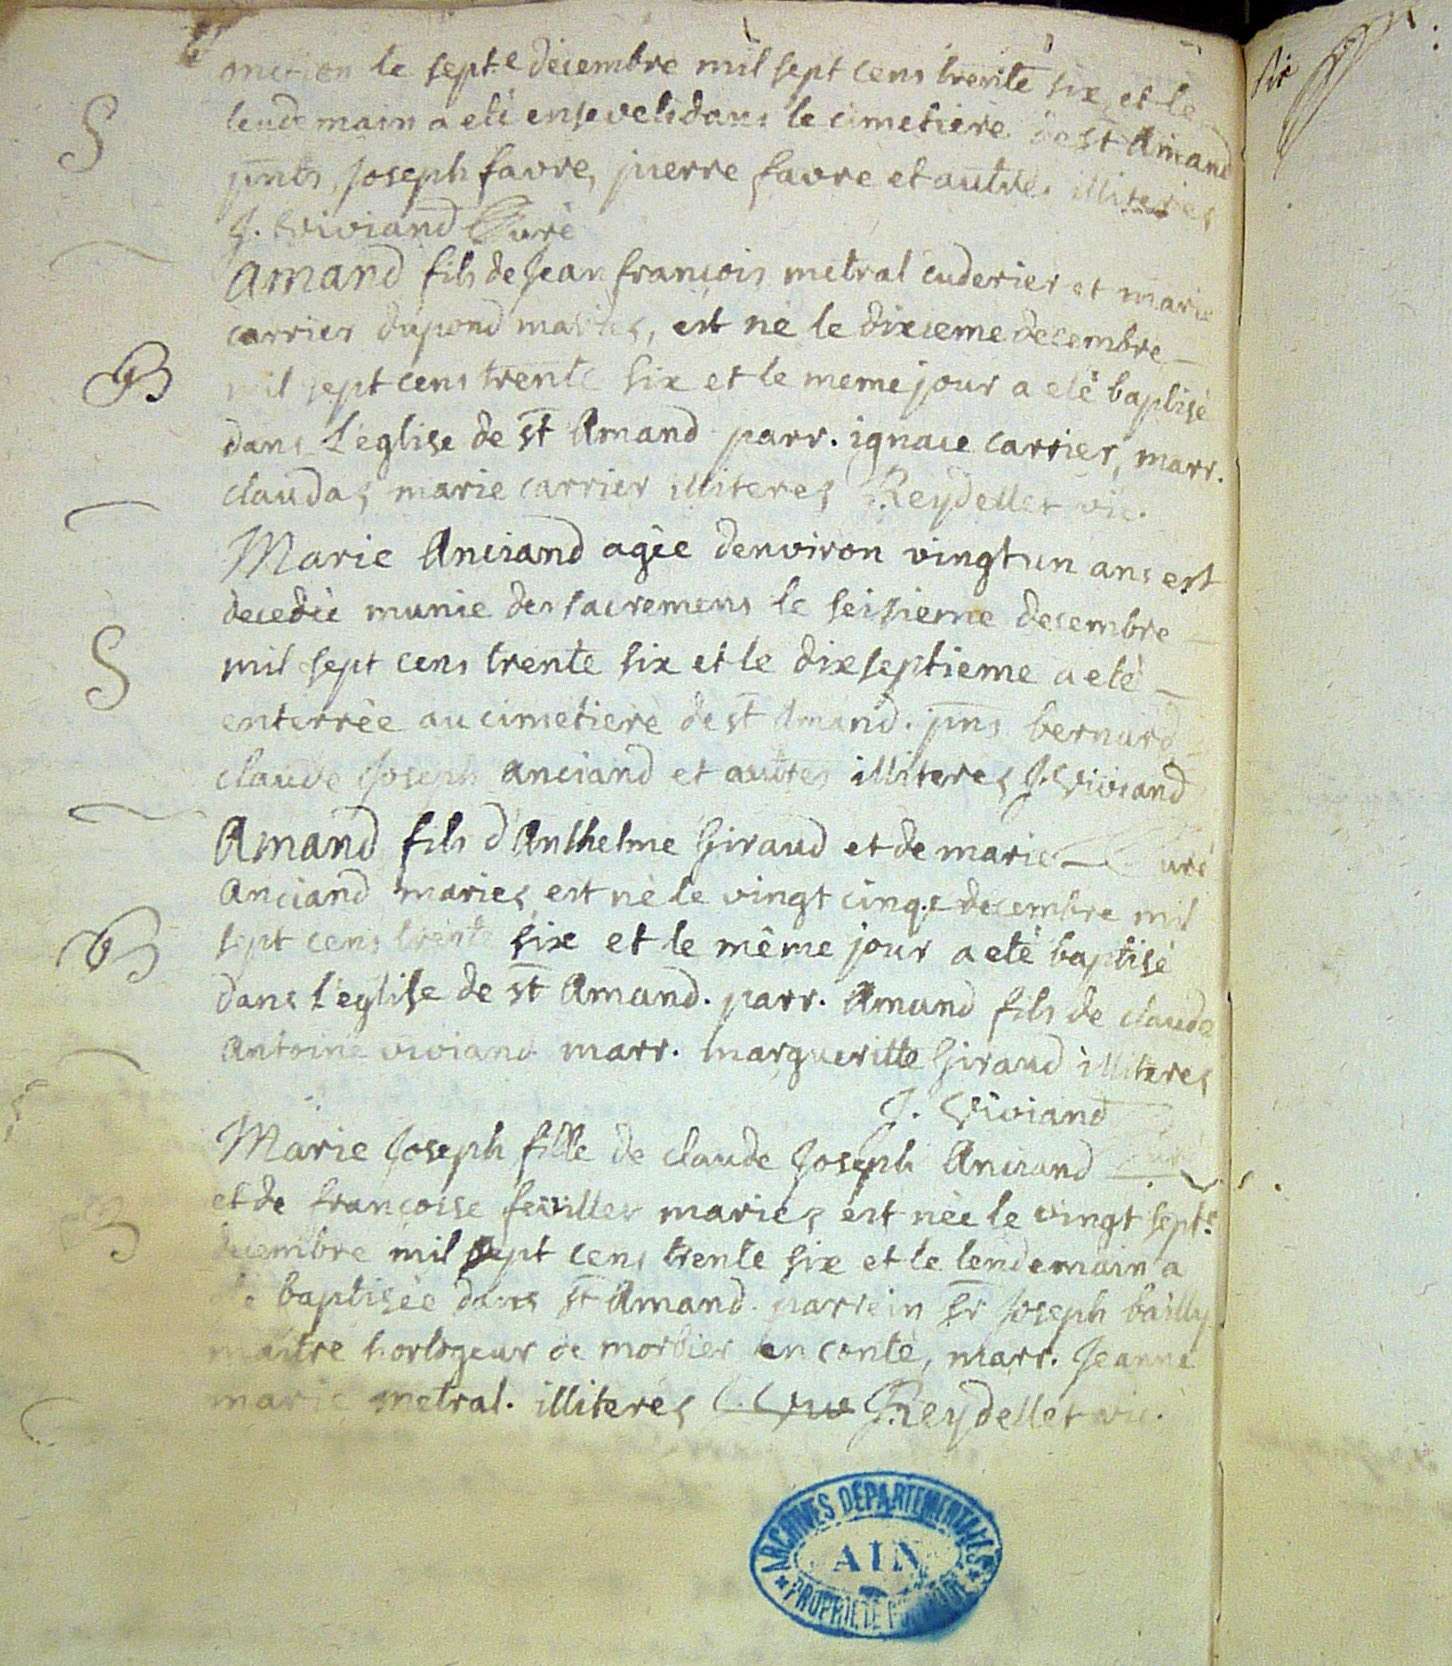 onction le septe decembre mil sept cens trente six et le
lendemain a eté enseveli dans le cimetiere de st Amand
pnts, Joseph favre, pierre favre et autres illiteres
J. Viviand Curé
S
Amand fils de Jean françois metral cuderier et marie
carrier dupond mariés, est né le dixieme decembre
mil sept cens trente six et le meme jour a eté baptisé
dans L'église de st Amand parr. ignace carrier, marr.
clauda, marie carrier illiteres Reydellet vic.
B
Marie Anciand agée denviron vingt un ans est
decedée munie des sacremens le seisieme decembre
mil sept cens trente six et le dix septieme a eté
enterrée au cimetiere de st Amand. pns bernard
claude Joseph anciand et autres illiteres J. Viviand
Curé
S
Amand fils d'Anthelme Giraud et de marie
Anciand mariés est né le vingt cinqe decembre mil
sept cens trente six et le même jour a eté baptisé
dans l'eglise de st Amand. parr. Amand fils de claude
Antoine viviand marr. margueritte Giraud illiteres
J. Viviand
Curé
B
Marie Joseph fille de claude Joseph Anciand
et de françoise feuillet mariés est née le vingt septe
decembre mil sept cens trente six et le lendemain a
eté baptisée dans st Amand parrein sr Joseph bailly
maitre horlogeur de morbier en conté, marr. Jeanne
marie metral. illiteres Reydellet vic.
B
ARCHIVES DÉPARTEMENTALES
AIN
PROPRIÉTÉ PUBLIQUE